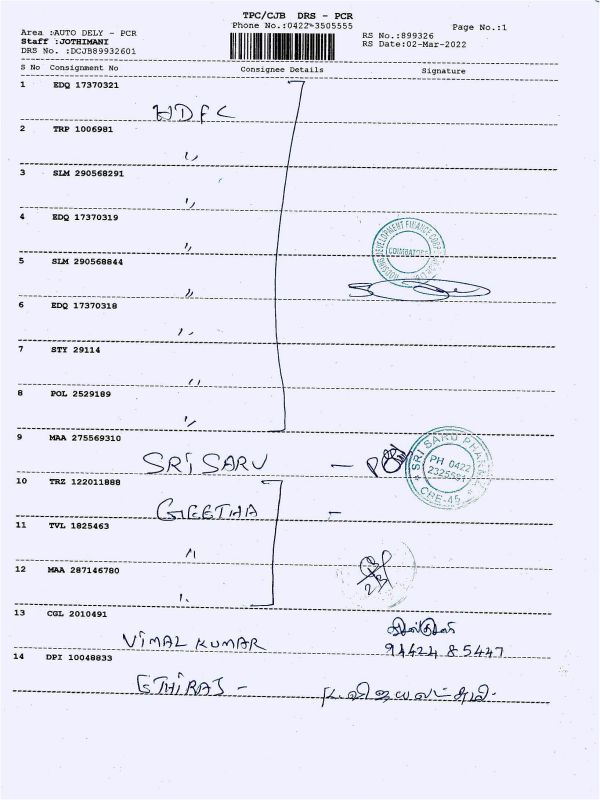 TPC/CJB DRS - PCR
Phone No.:0422-3505555
Page No.:1
Area :AUTO DELY - PCR
Staff :JOTHIMANI
DRS No. :DCJB89932601
RS No.:899326
RS Date:02-Mar-2022
S No Consignment No Consignee Details Signature
1 EDQ 17370321
HDFC
2 TRP 1006981
"
3 SLM 290568291
"
4 EDQ 17370319
"
5 SLM 290568844
"
6 EDQ 17370318
"
7 STY 29114
"
8 POL 2529189
"
DEVELOPMENT FINANCE CORP
COIMBATORE
9 MAA 275569310
SRI SARU -
SRI SARU PHARMA
PH 0422
CBE-45
10 TRZ 122011888
GEETHA -
11 TVL 1825463
"
12 MAA 287146780
"
13 CGL 2010491
VIMAL KUMAR
94424 85447
14 DPI 10048833
ETHIRAJ -